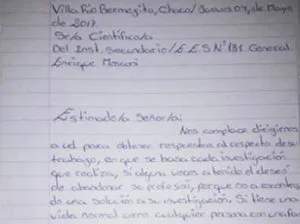 Villa Río Bermejito, Chaco/Jueves 04, de Mayo
de 2017.
Sr/a Científico/a
Del Inst. Secundario/E.E.S N°181 General
Enrique Mosconi
Estimado/a Señor/a:
Nos complace dirigirnos
a ud para obtener respuestas al respecto de su
trabajo, en que se basa cada investigación
que realiza, si alguna veces a tenido el deseo
de abandonar su profesión, porque no a encontra
do una solución a su investigación. Si lleva una
vida normal como cualquier persona